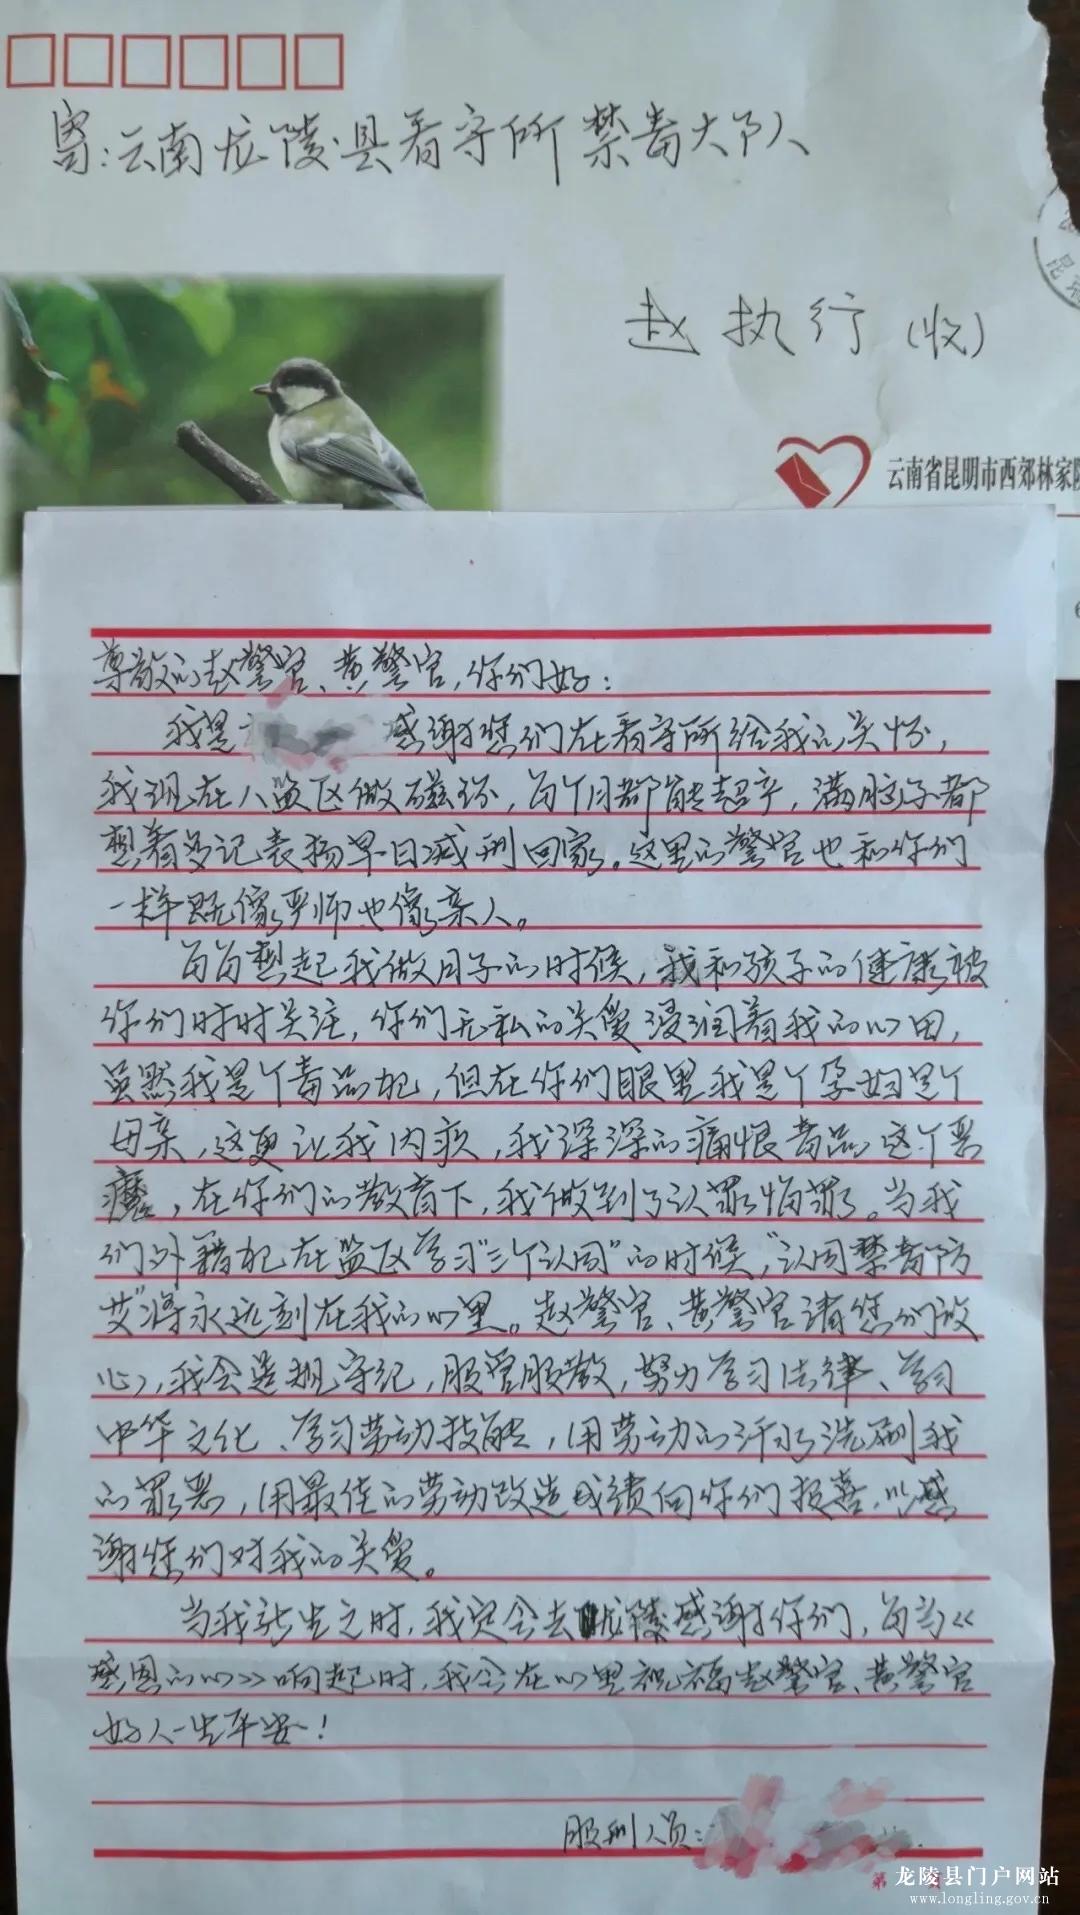 寄:云南龙陵县看守所禁毒大队
赵执行(收)
云南省昆明市西郊林家院
尊敬的赵警官、黄警官,你们好:
我是 感谢您们在看守所给我的关怀,
我现在八监区做磁环,每个月都能超产,满脑子都
想着多记表扬早日减刑回家。这里的警官也和你们
一样既像严师也像亲人。
每每想起我做月子的时候,我和孩子的健康被
你们时时关注,你们无私的关爱浸润着我的心田,
虽然我是个毒品犯,但在你们眼里我是个孕妇是个
母亲,这更让我内疚,我深深的痛恨毒品这个恶
魔,在你们的教育下,我做到了认罪悔罪。当我
们外籍犯在监区学习“三个认同”的时候,“认同禁毒防
艾”将永远刻在我的心里。赵警官、黄警官请您们放
心,我会遵规守纪,服管服教,努力学习法律、学习
中华文化、学习劳动技能,用劳动的汗水洗刷我
的罪恶,用最佳的劳动改造成绩向你们报喜,以感
谢您们对我的关爱。
当我新生之时,我定会去龙陵感谢你们,每当《
感恩的心》响起时,我会在心里祝福赵警官、黄警官
好人一生平安!
服刑人员:
第
龙陵县门户网站
www.longling.gov.cn